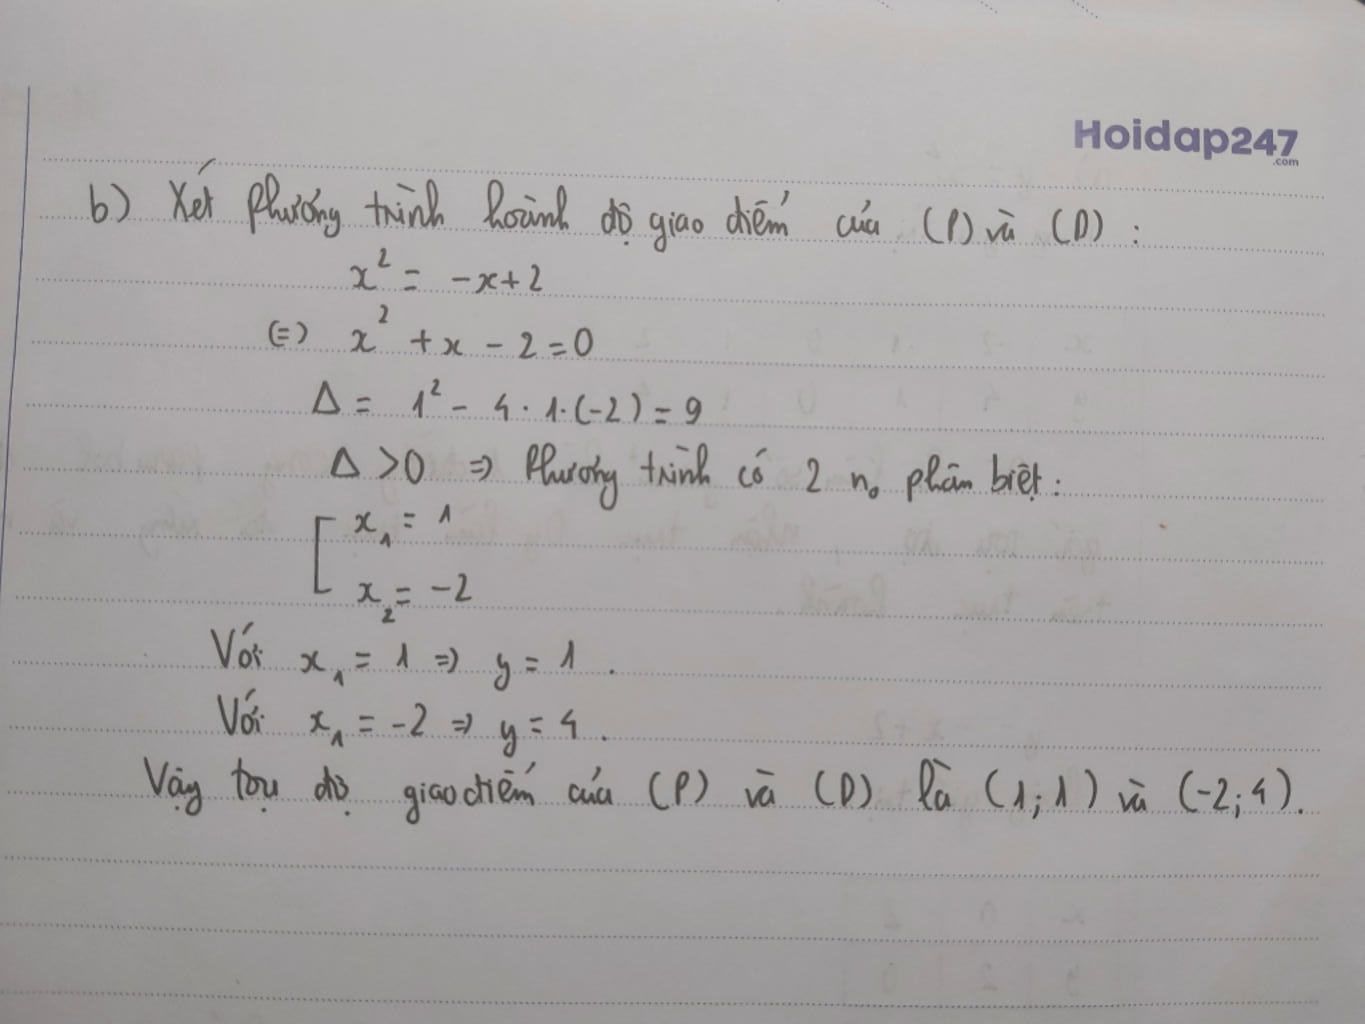 Hoidap247
.com
b) Xét phương trình hoành độ giao điểm của (P) và (D) :
x² = -x+2
(=) x² + x - 2 = 0
Δ = 1² - 4 · 1 · (-2) = 9
Δ > 0 => Phương trình có 2 n₀ phân biệt :
[ x₁ = 1
x₂ = -2
Với x₁ = 1 => y = 1 .
Với x₁ = -2 => y = 4 .
Vậy tọa độ giao điểm của (P) và (D) là (1 ; 1) và (-2 ; 4).